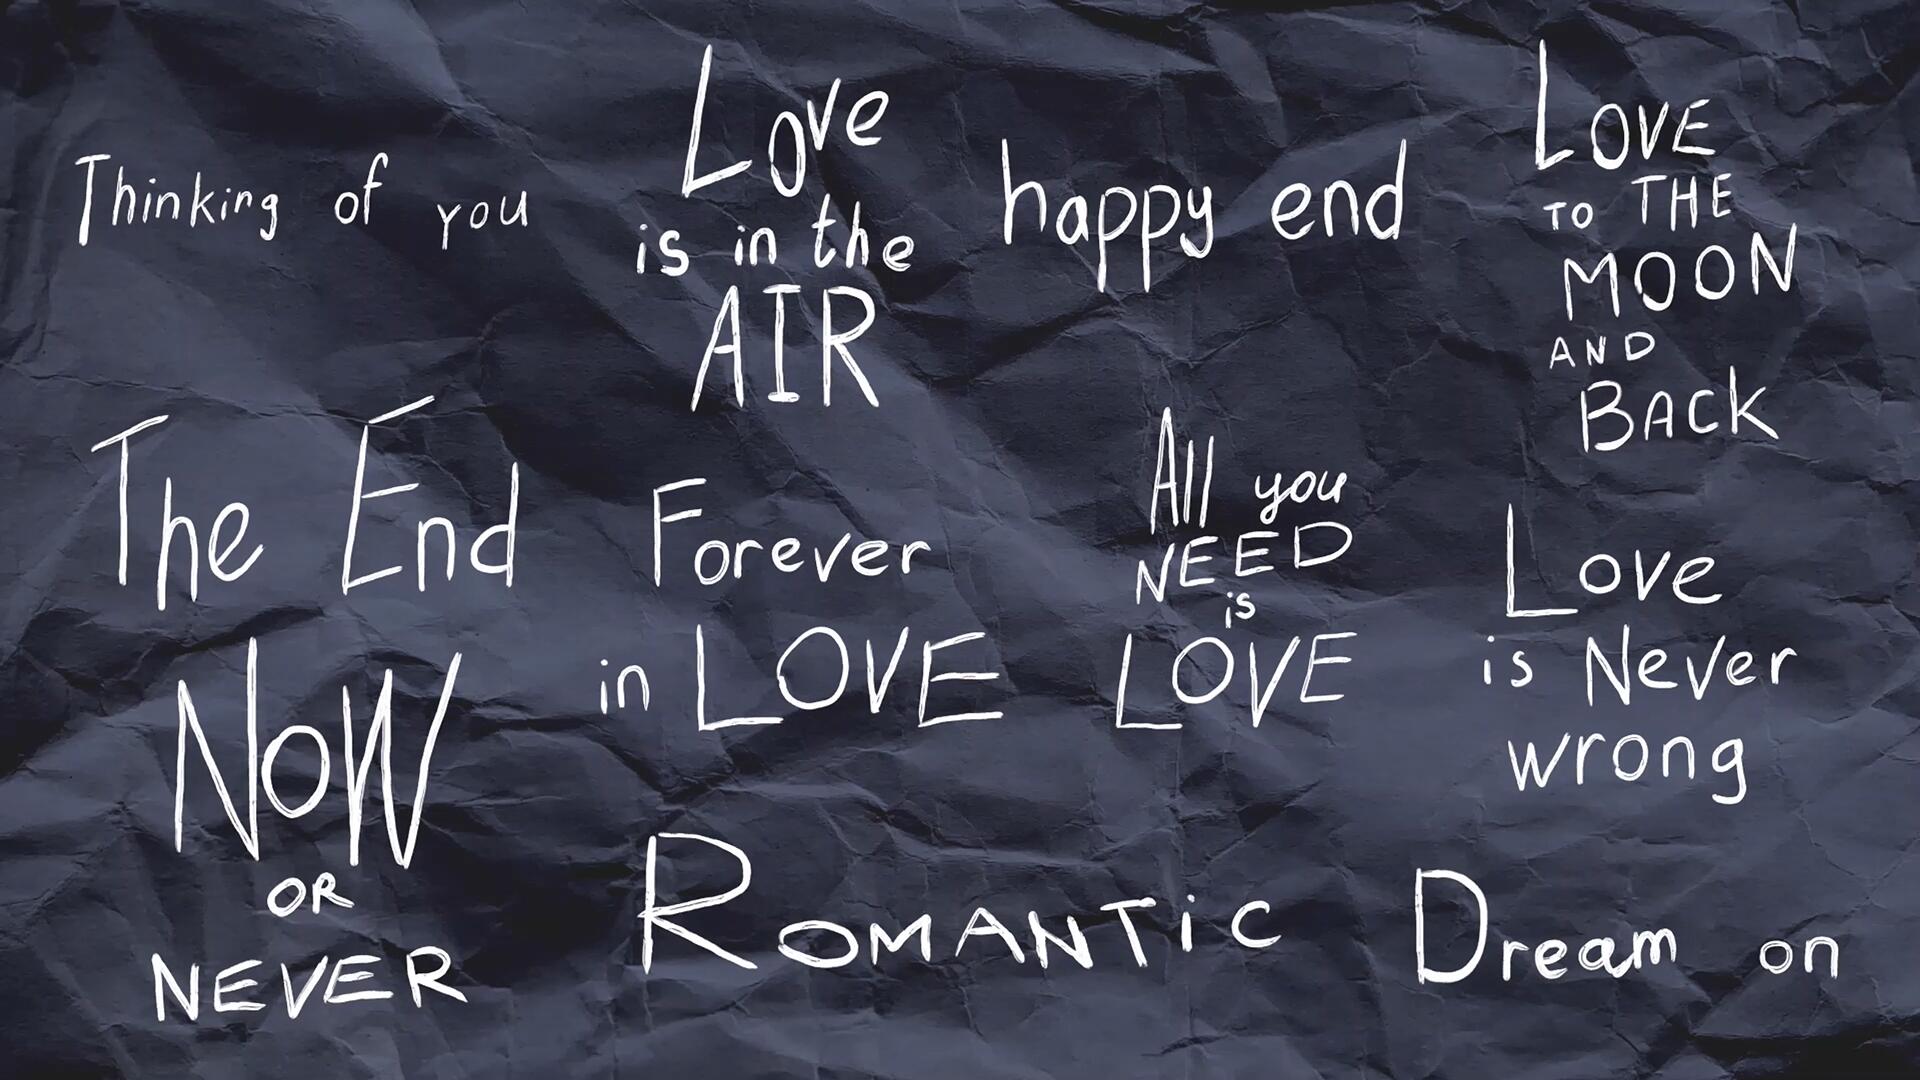 Thinking of you
Love
is in the
AIR
happy end
LOVE
TO THE
MOON
AND
BACK
The End
Forever
in LOVE
All you
NEED
is
LOVE
Love
is Never
wrong
NoW
OR
NEVER
ROMANTiC
Dream on